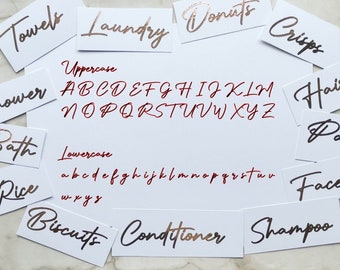 Towels
Laundry
Donuts
Crisps
Uppercase
A B C D E F G H I J K L M
N O P Q R S T U V W X Y Z
Lowercase
a b c d e f g h i j k l m n o p q r s t u v
w x y z
Hai
Pa
Face
Shampoo
Conditioner
Biscuits
Rice
Bath
ower